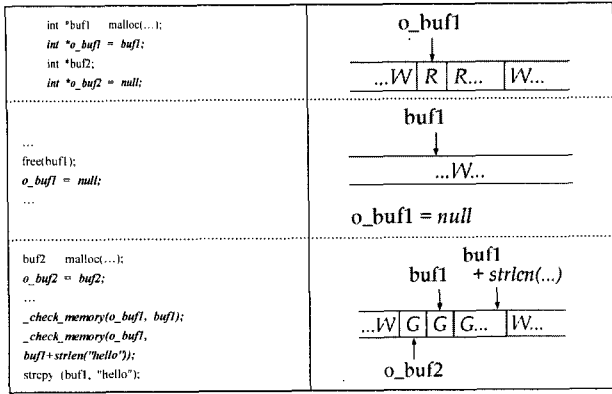 int *buf1 malloc(...);
int *o_buf1 = buf1;
int *buf2;
int *o_buf2 = null;
o_buf1
...W R R... W...
...
free(buf1);
o_buf1 = null;
...
buf1
...W...
o_buf1 = null
buf2 malloc(...);
o_buf2 = buf2;
...
_check_memory(o_buf1, buf1);
_check_memory(o_buf1,
buf1+strlen("hello"));
strcpy (buf1, "hello");
buf1
buf1 + strlen(...)
...W G G G... W...
o_buf2